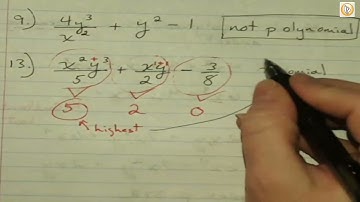 9.) 4y³/x² + y² - 1 not polynomial
13.) x²y³/5 + xy/2 - 3/8 nomial
5 2 0
highest